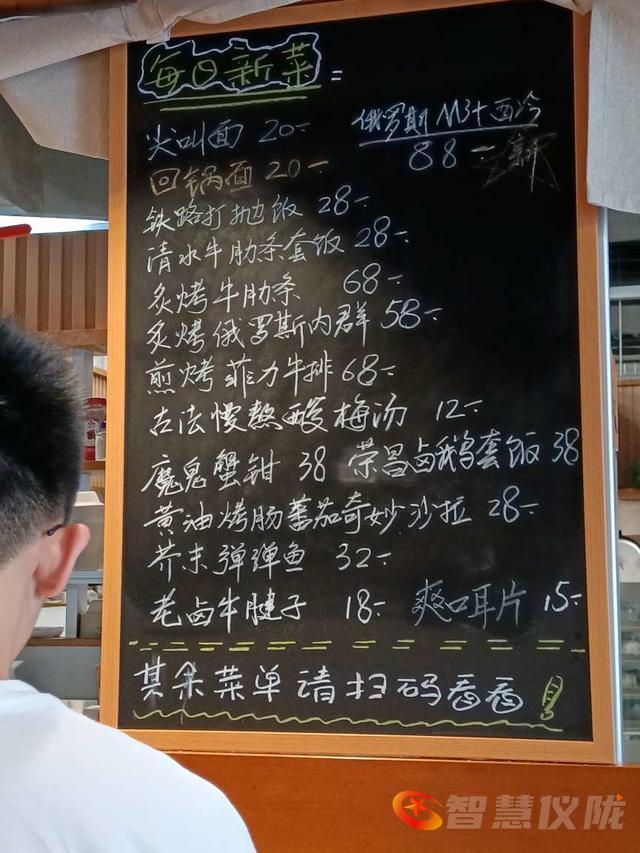 每日新菜=
尖叫面 20-
俄罗斯M3+西冷
88-新
回锅面 20-
铁路打抛饭 28-
清水牛肋条套饭 28-
炙烤牛肋条 68-
炙烤俄罗斯内群 58-
煎烤菲力牛排 68-
古法慢熬酸梅汤 12-
魔鬼蟹钳 38 荣昌卤鹅套饭 38
黄油烤肠蕃茄奇妙沙拉 28-
芥末弹弹鱼 32-
老卤牛腱子 18- 爽口耳片 15-
其余菜单请扫码看看!
智慧仪陇